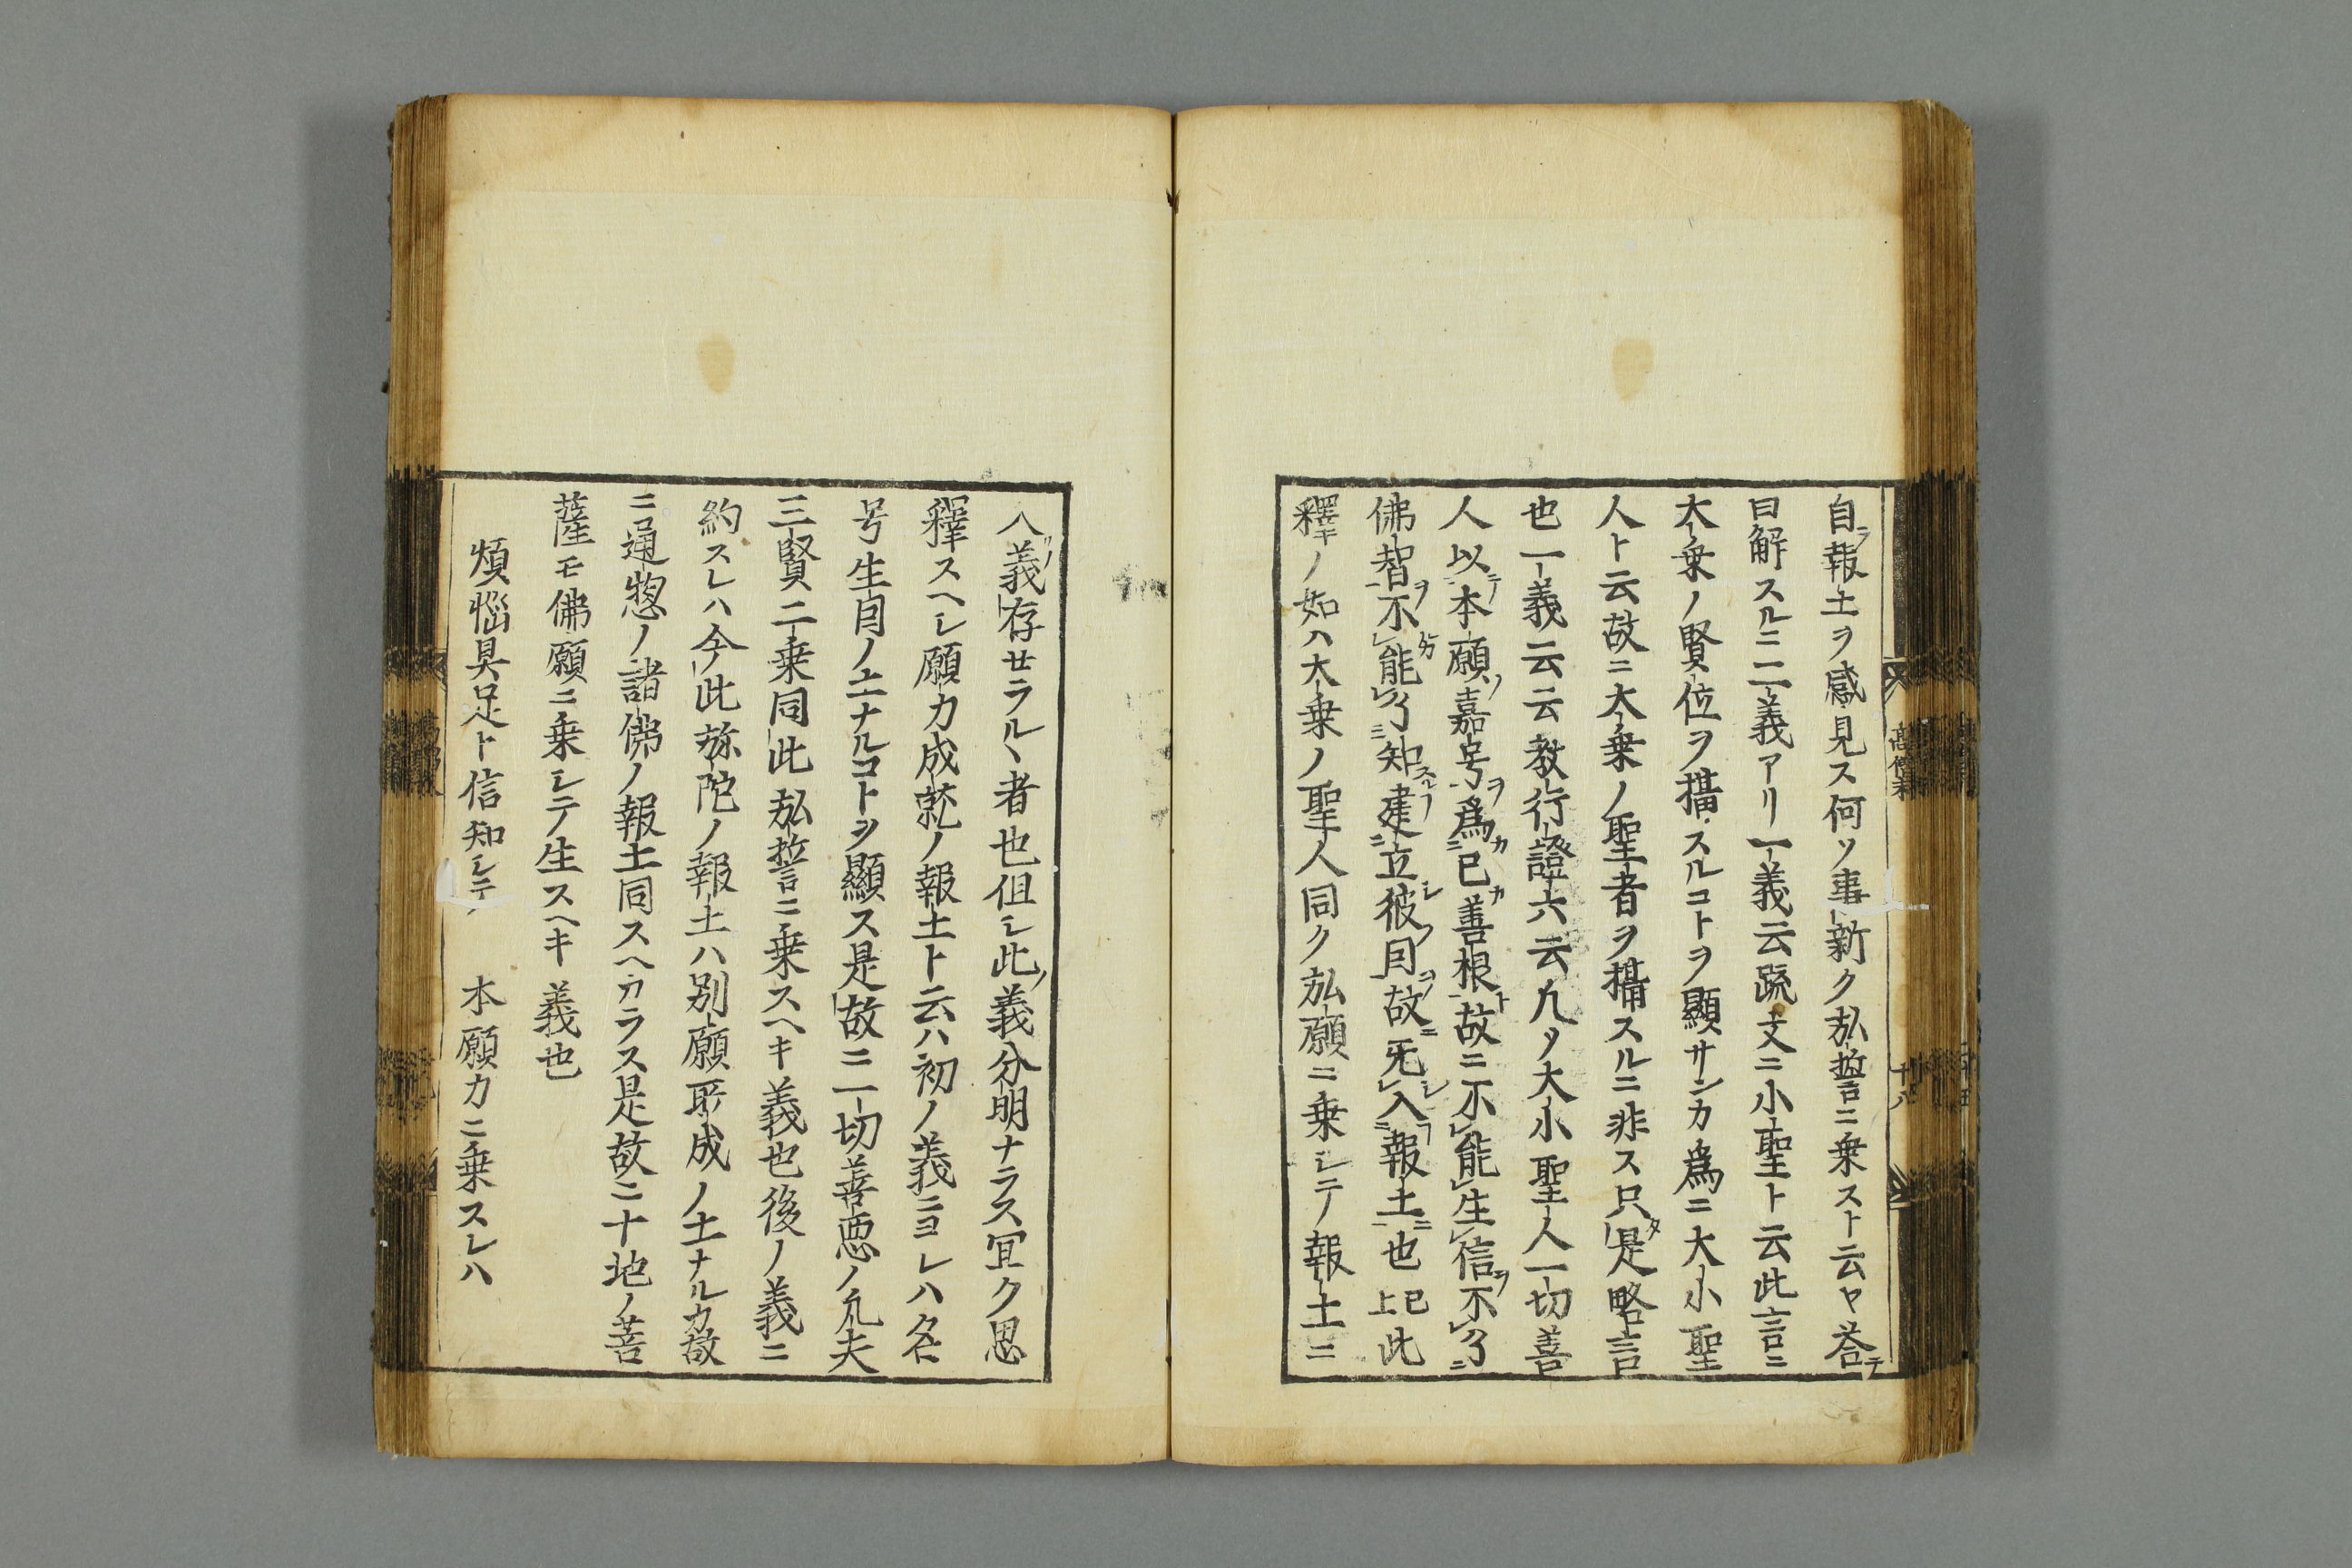 自ラ報土ヲ感見ス何ソ事新ク弘誓ニ乗スト云ヤ荅テ
曰解スルニ二義アリ一義云䟽文ニ小聖ト云此言ニ
大乗ノ賢位ヲ攝スルコトヲ顯サンカ爲ニ大小聖
人ト云故ニ大乗ノ聖者ヲ攝スルニ非ス只タ是略言
也一義云云教行證六云凡ソ大小聖人一切善
人以テ本願ノ嘉号ヲ爲ニ已カ善根ト故ニ不能生信ヲ不了
佛智ヲ不能了知スルコト建立シ彼ノ因ヲ故ニ旡シ入コト報土ニ也已上此
釋ノ如ハ大乗ノ聖人同ク弘願ニ乗シテ報土ニ
八ノ義存セラルヽ者也但シ此ノ義分明ナラス冝ク思
釋スヘレ願力成就ノ報土ト云ハ初ノ義ニヨレハ名
号生因ノ土ナルコトヲ顯ス是故ニ一切善悪ノ凡夫
三賢二乗同此弘誓ニ乗スヘキ義也後ノ義ニ
約スレハ今此弥陀ノ報土ハ別願所成ノ土ナルカ故
ニ通惣ノ諸佛ノ報土同スヘカラス是故ニ十地ノ菩
薩モ佛願ニ乗シテ生スヘキ義也
煩惱具足ト信知シテ　本願力ニ乗スレハ